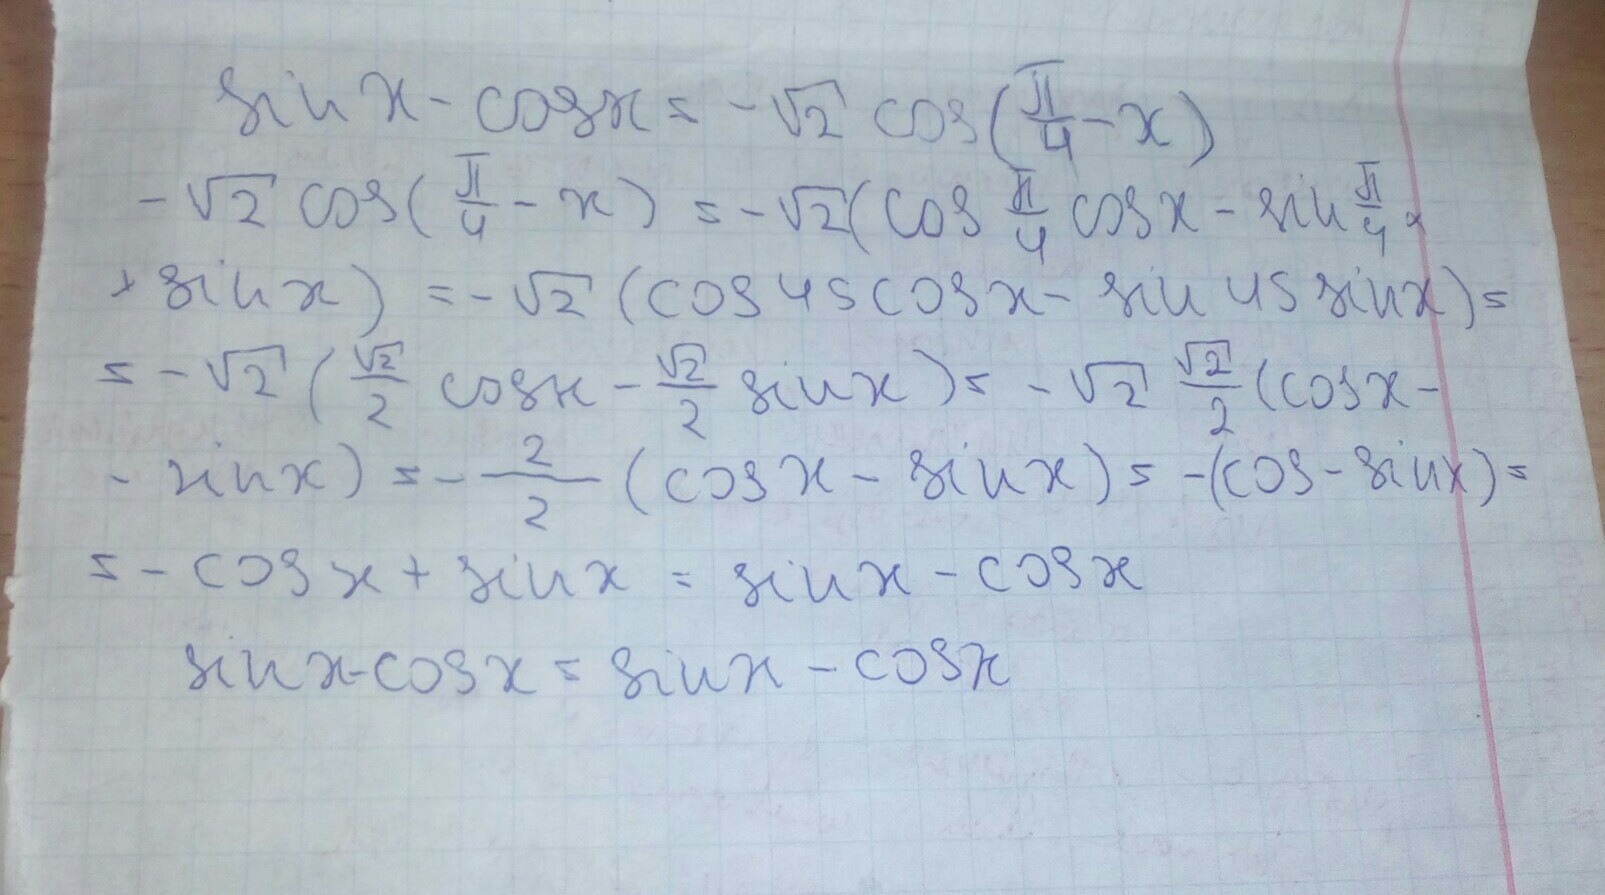 sin x - cos x = -√2 cos(π/4 - x)
-√2 cos(π/4 - x) = -√2(cos π/4 cos x - sin π/4 ×
× sin x) = -√2 (cos 45 cos x - sin 45 sin x) =
= -√2 (√2/2 cos x - √2/2 sin x) = -√2 √2/2 (cos x -
- sin x) = - 2/2 (cos x - sin x) = -(cos - sin x) =
= - cos x + sin x = sin x - cos x
sin x - cos x = sin x - cos x